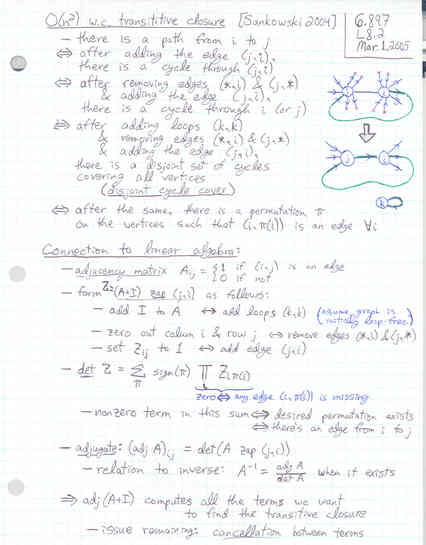 O(n²) w.c. transitive closure [Sankowski 2004]
6.897
L8.2
Mar. 1, 2005
- there is a path from i to j
⇔ after adding the edge (j,i),
there is a cycle through (j,i)
⇔ after removing edges (*,i) & (j,*)
& adding the edge (j,i),
there is a cycle through i (or j)
⇔ after adding loops (k,k)
& removing edges (*,i) & (j,*)
& adding the edge (j,i),
there is a disjoint set of cycles
covering all vertices
(disjoint cycle cover)
⇔ after the same, there is a permutation π
on the vertices such that (i,π(i)) is an edge ∀i
Connection to linear algebra:
- adjacency matrix Aᵢ,ⱼ = {1 if (i,j) is an edge
{0 if not
- form Z=(A+I) zap (j,i) as follows:
- add I to A ↔ add loops (k,k) (assume graph is
initially loop-free)
- zero out column i & row j ↔ remove edges (*,i) & (j,*)
- set Zᵢⱼ to 1 ↔ add edge (j,i)
- det Z = Σ_π sign(π) ∏ Z_{i,π(i)}
zero ⇔ any edge (i,π(i)) is missing
- nonzero term in this sum ⇔ desired permutation exists
⇔ there's an edge from i to j
- adjugate: (adj A)ᵢ,ⱼ = det(A zap (j,i))
- relation to inverse: A⁻¹ = adj A / det A when it exists
⇒ adj(A+I) computes all the terms we want
to find the transitive closure
- issue remaining: cancellation between terms